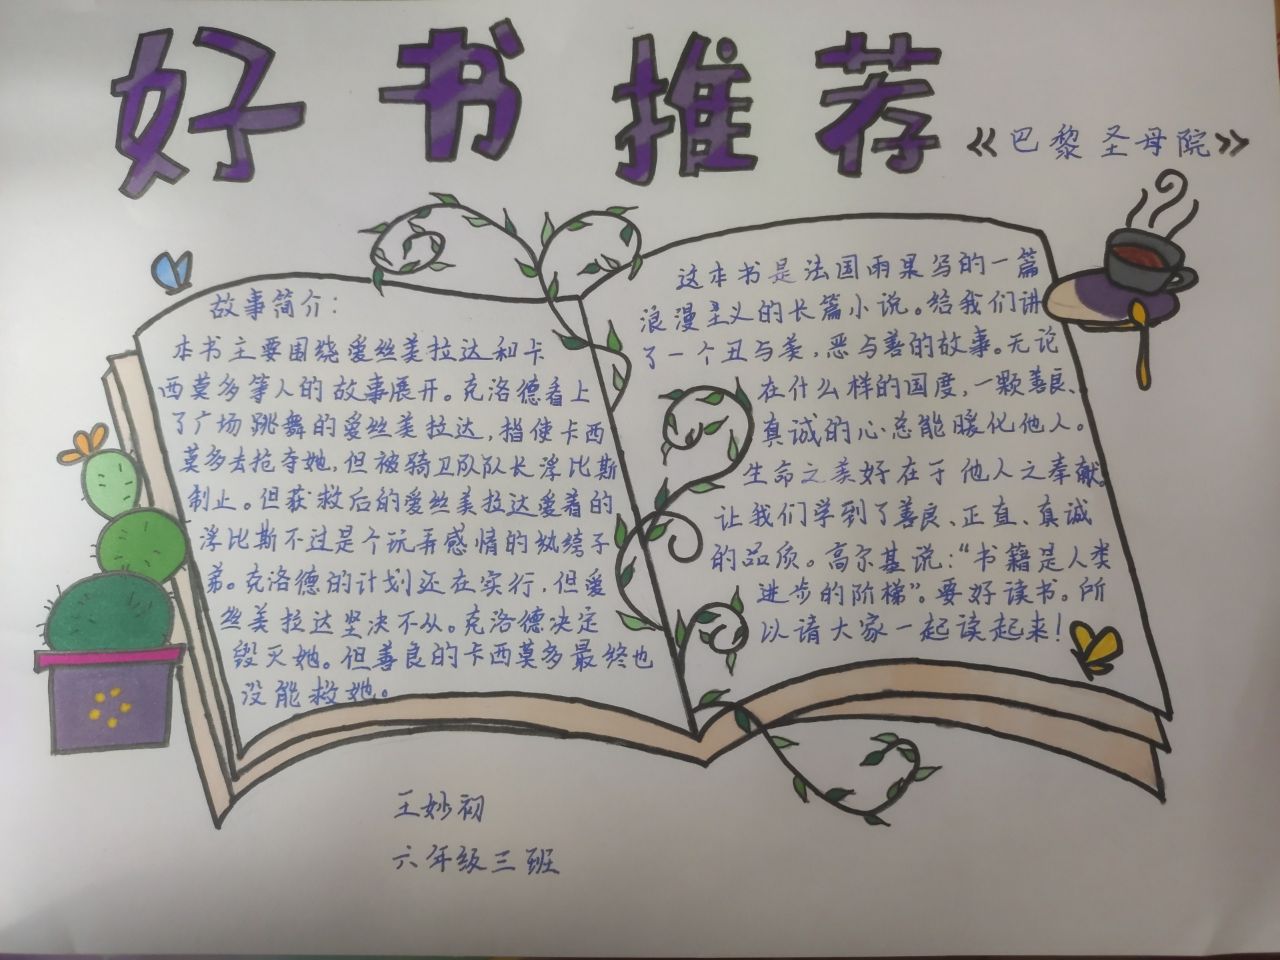 好书推荐
《巴黎圣母院》
故事简介：
本书主要围绕爱丝美拉达和卡
西莫多等人的故事展开。克洛德看上
了广场跳舞的爱丝美拉达，指使卡西
莫多去抢夺她，但被骑卫队队长浮比斯
制止。但获救后的爱丝美拉达爱着的
浮比斯不过是个玩弄感情的纨绔子
弟。克洛德的计划还在实行，但爱
丝美拉达坚决不从。克洛德决定
毁灭她。但善良的卡西莫多最终也
没能救她。
这本书是法国雨果写的一篇
浪漫主义的长篇小说。给我们讲
了一个丑与美，恶与善的故事。无论
在什么样的国度，一颗善良、
真诚的心总能暖化他人。
生命之美好在于他人之奉献。
让我们学到了善良、正直、真诚
的品质。高尔基说：“书籍是人类
进步的阶梯”。要好读书。所
以请大家一起读起来！
王妙初
六年级三班